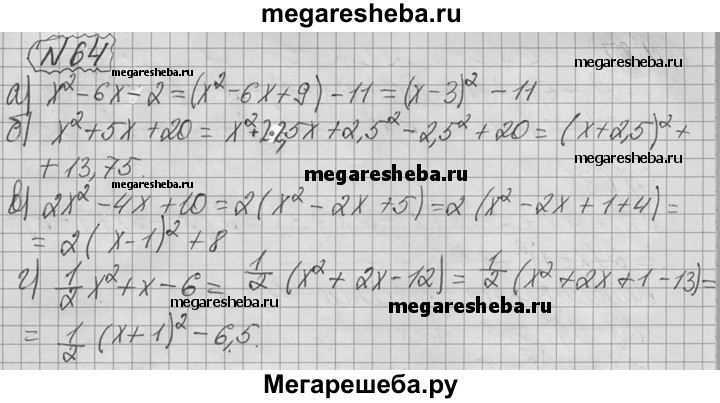 megaresheba.ru
N 64
megaresheba.ru megaresheba.ru
а) x² - 6x - 2 = (x² - 6x + 9) - 11 = (x - 3)² - 11
б) x² + 5x + 20 = x² + 2·2,5x + 2,5² - 2,5² + 20 = (x + 2,5)² +
+ 13,75.
megaresheba.ru megaresheba.ru megaresheba.ru
в) 2x² - 4x + 10 = 2(x² - 2x + 5) = 2(x² - 2x + 1 + 4) =
= 2(x - 1)² + 8
megaresheba.ru megaresheba.ru
г) 1/2 x² + x - 6 = 1/2 (x² + 2x - 12) = 1/2 (x² + 2x + 1 - 13) =
megaresheba.ru megaresheba.ru
= 1/2 (x + 1)² - 6,5.
megaresheba.ru
Мегарешеба.ру